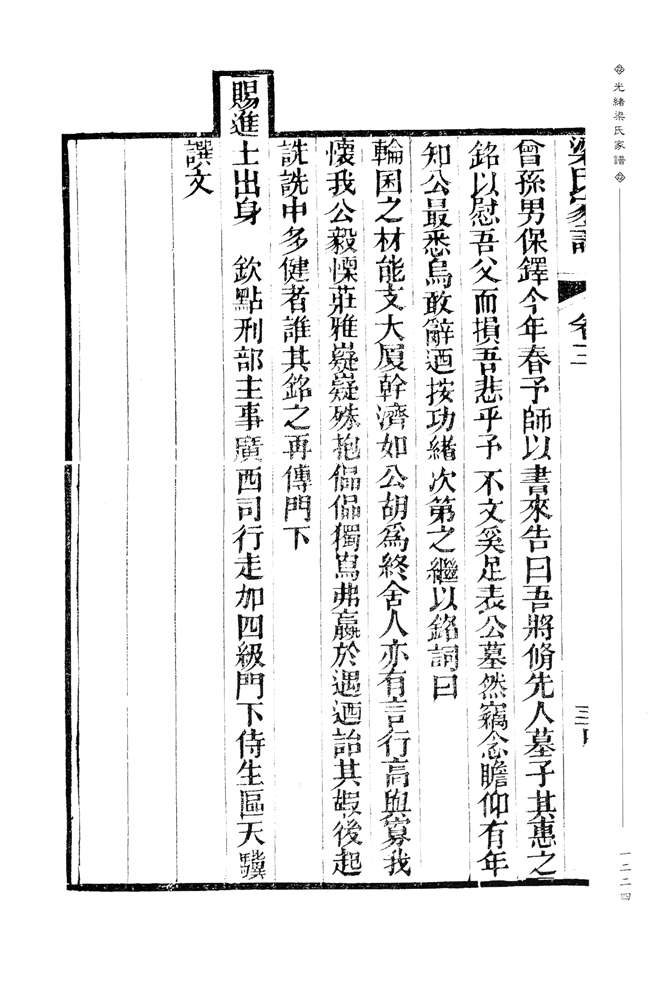 光緒梁氏家譜
一二二四
梁氏家譜 卷三
曾孫男保鐸今年春予師以書來告曰吾將脩先人墓子其惠之
銘以慰吾父而損吾悲乎予不文奚足表公墓然竊念瞻仰有年
知公最悉烏敢辭迺按功緒次第之繼以銘詞曰
輪囷之材能支大廈幹濟如公胡爲終舍人亦有言行高與寡我
懷我公毅慄莊雅嶷嶷殊抱偘偘獨寫弗嬴於遇迺詒其嘏後起
詵詵中多健者誰其銘之再傳門下
賜進士出身 欽點刑部主事廣西司行走加四級門下侍生區天驥
譔文